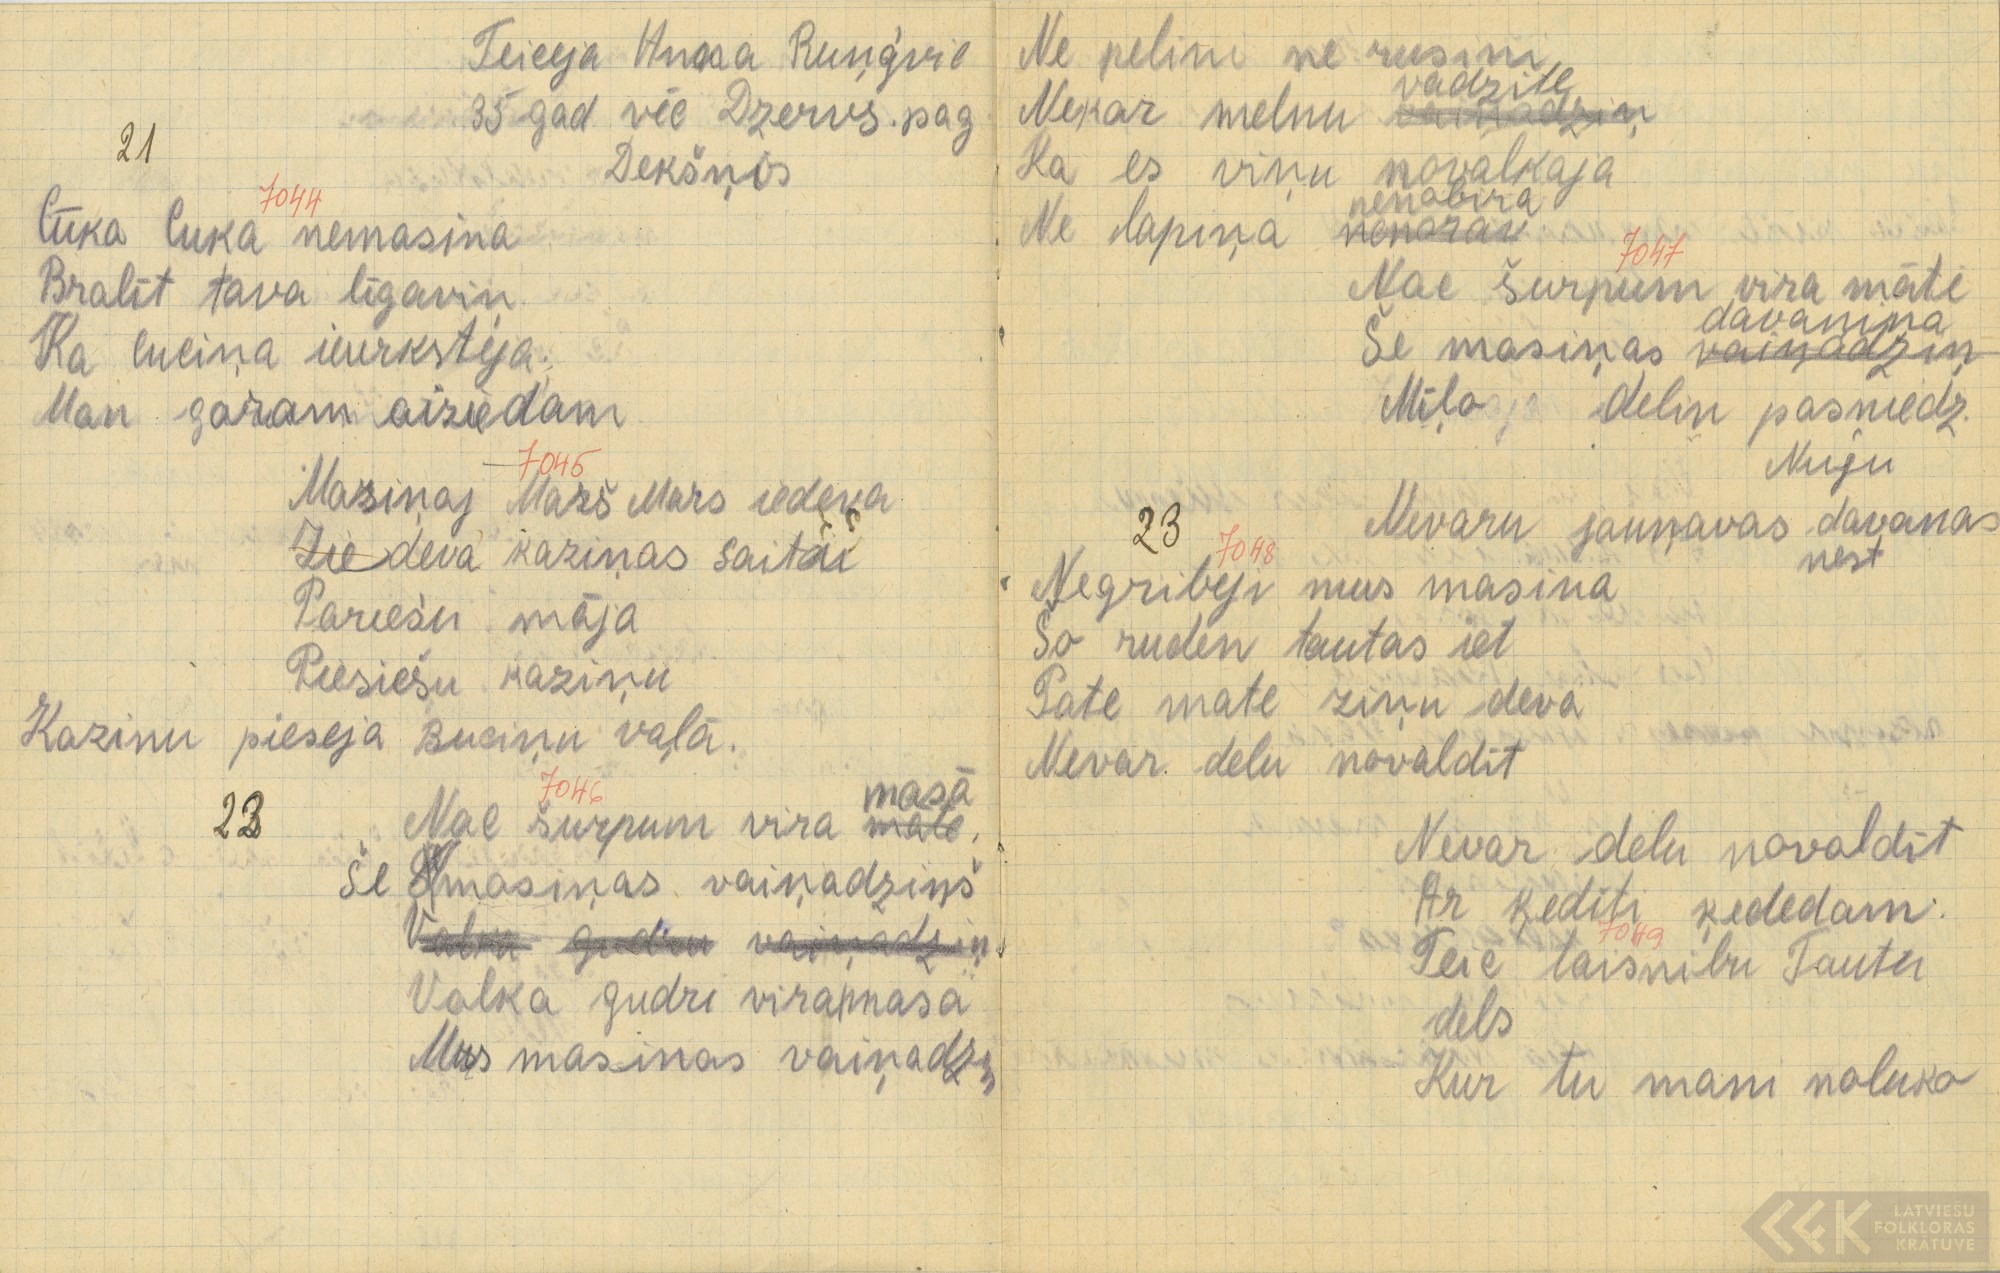 Teiceja Anna Ruņģvic
35 gad vēc Dzervs. pag
Dekšņis
21
7044
Cūka Cuka nemasina
Bralīt tava līgaviņ
Ka cuciņa ieurkstēja.
Man garam aiziedam
7045
Masiņaj Marš Mars iedeva
Zie deva kaziņas saitāi
Pariešu māja
Piesiešu kaziņu
Kazinu pieseja Buciņu vaļā.
7046
masā
22 Nac šurpum vira mate,
Še masiņas vaiņadziņš
Valku gudru vaiņadziņ
Valka gudri viramasa
Mus masinas vaiņadziņ
Ne pelini ne rusini
vadzite
Nekar melnu vaiņadziņ
Ka es viņu novalkaja
nenobira
Ne lapiņa nenorav
7047
Nac šurpum vira māti
davaniņa
Še masiņas vaiņadziņ
Mīļo delin pasniedz.
Nuju
Nevaru jauņavas davanas
nest
23
7048
Negribeji mus masina
Šo ruden tautas iet
Pate mate ziņu deva
Nevar delu novaldīt
Nevar delu novaldīt
Ar ķediti ķededam.
7049
Teic taisnibu Tautu
dels
Kur tu mani noluko
LATVIEŠU
FOLKLORAS
KRĀTUVE